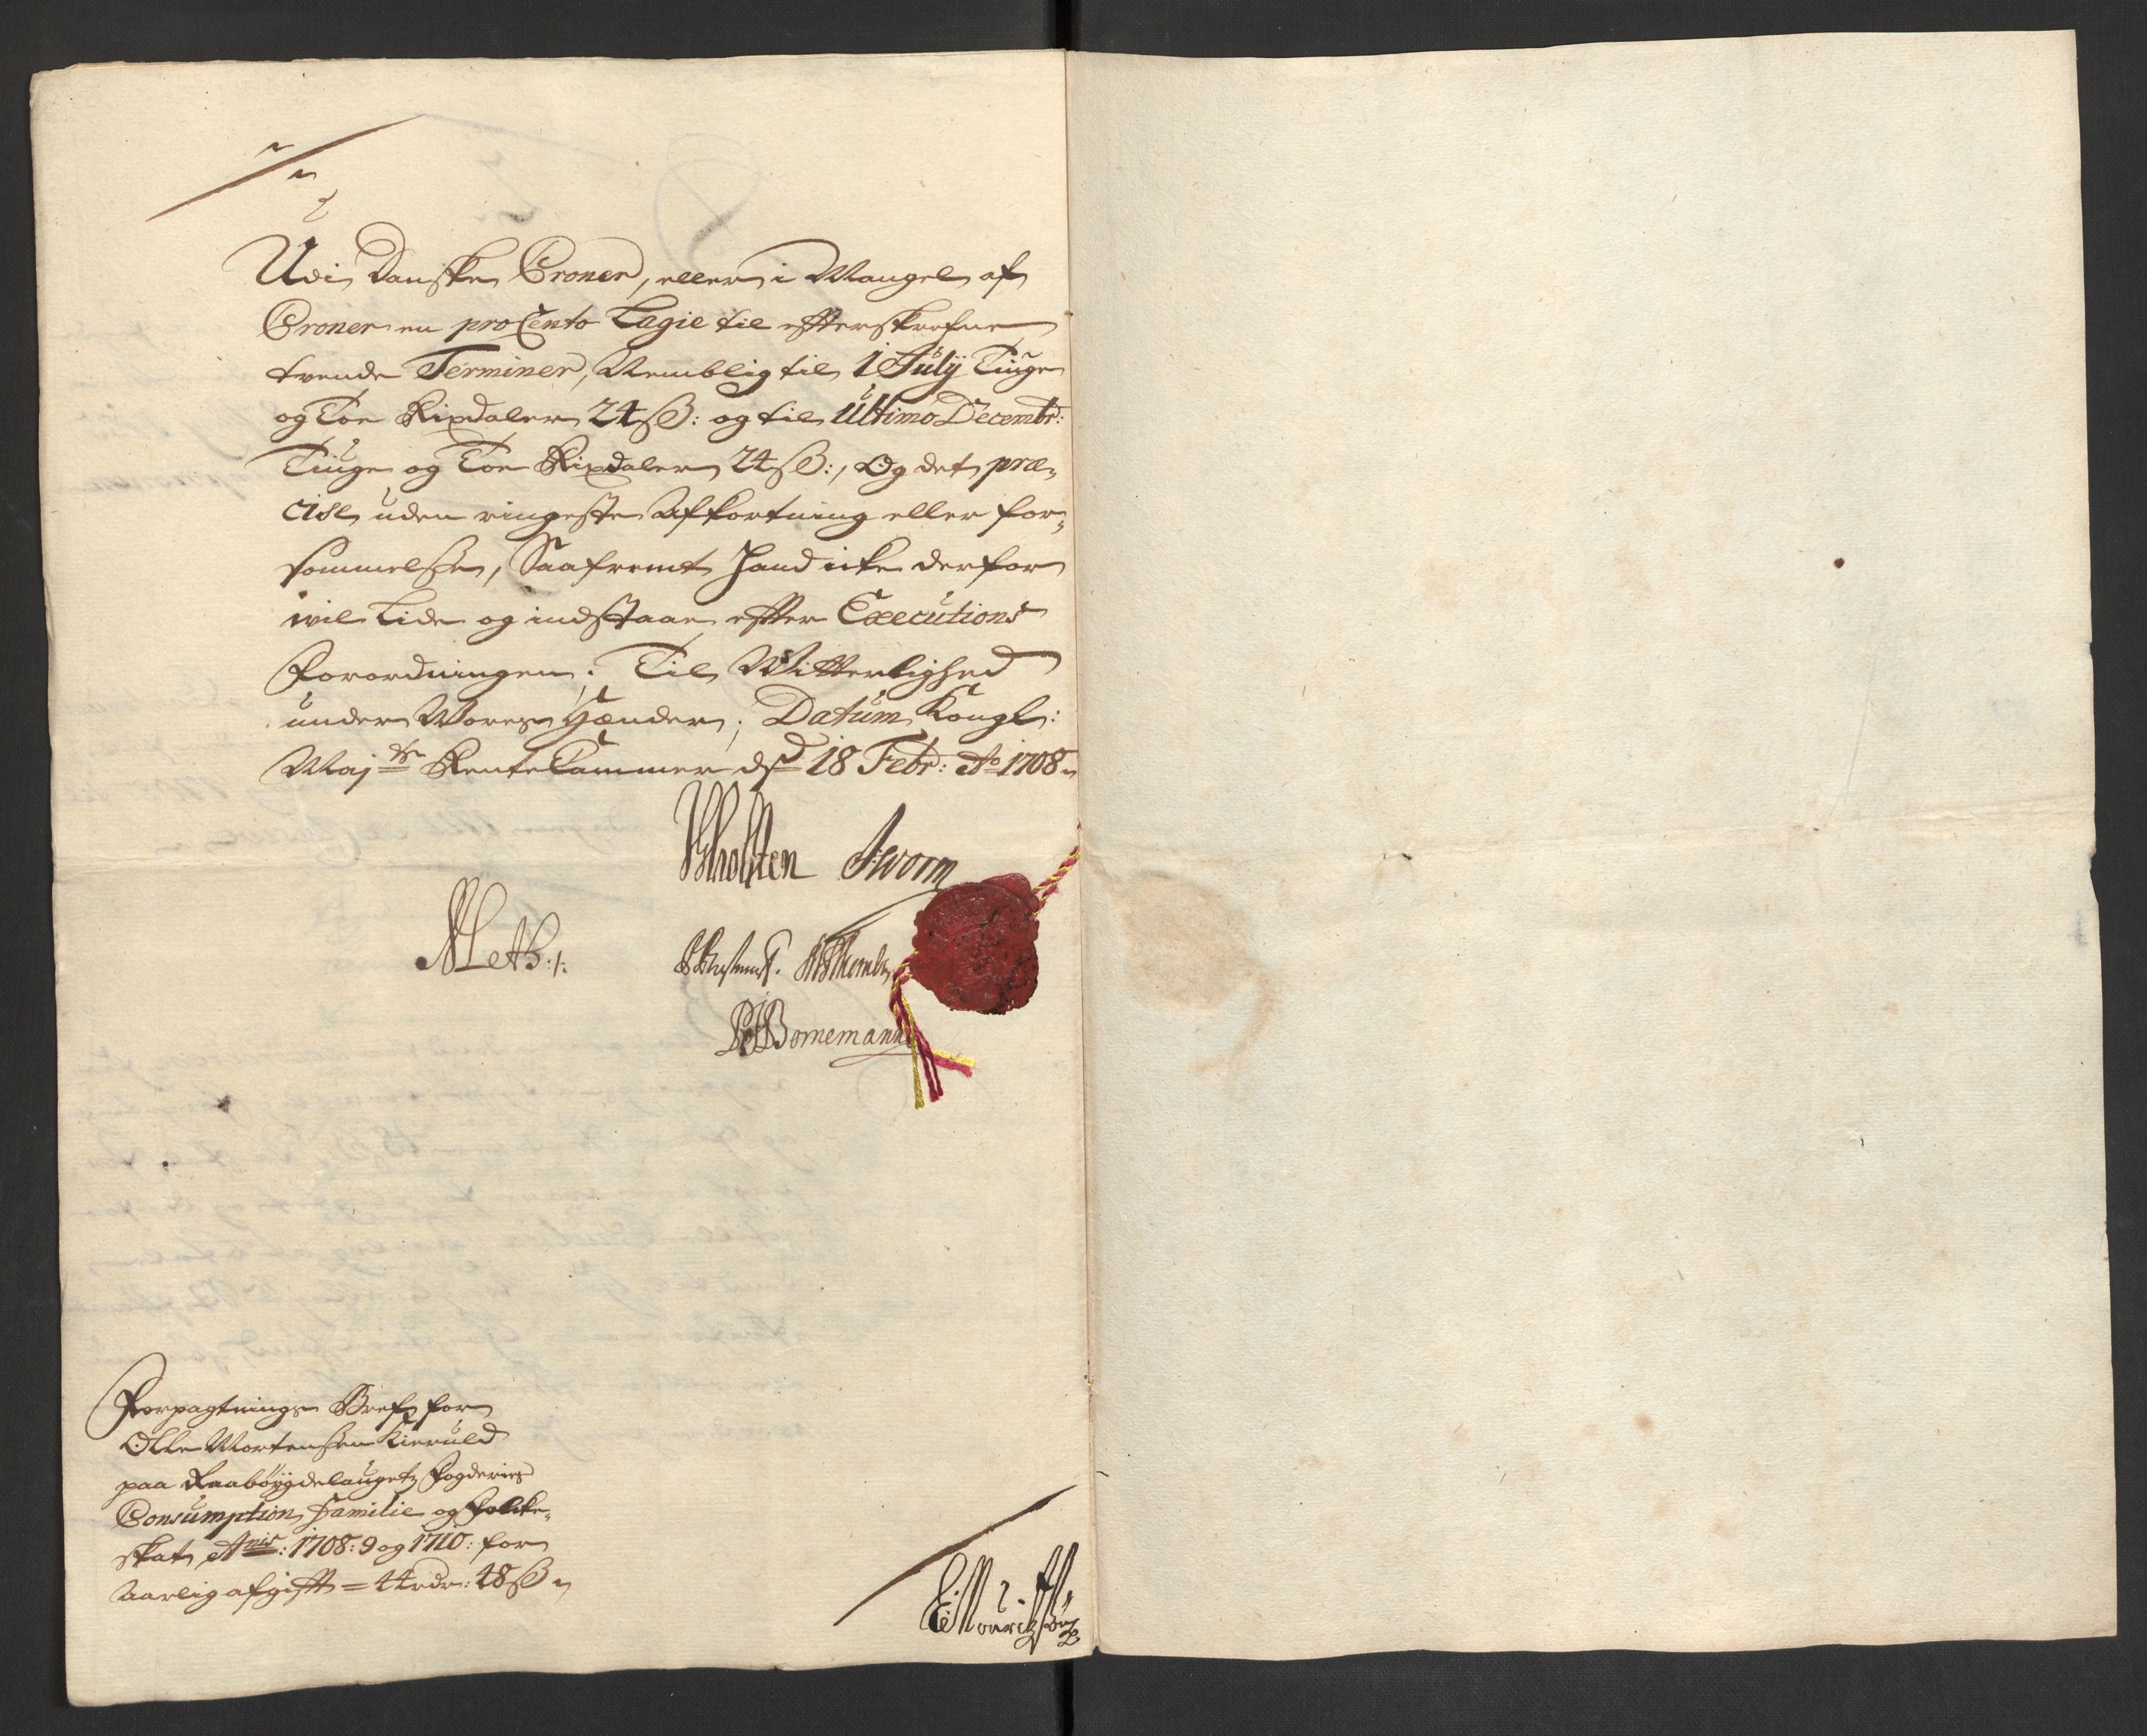 Udi Danske Croner, eller i Mangel af
Croner en pro Cento Lagie til efterskrefne
tvende Terminer, Nemblig til 1 July Tiuge
og Toe Rixdaler 24 ß: og til Ultimo Decembr:
Tiuge og Toe Rixdaler 24 ß:, Og det præ-
cise, uden ringeste Afkortning eller for-
sømmelsse, Saafremt Hand icke derfor
wil Lide og indstaae efter Executions
Forordningen. Til Witterlighed
under Wores Hænder; Datum Kongl:
Maj:ts RenteCammer dsd 18 Febr: Ao 1708
Holsten Worm
Meth:
Bornemann
Forpagtnings Bref for
Olle Mortenssen Kieruld
paa Raabøygdelaugetz Fogderies
Consumption, Familie og Folcke-
skat Anis: 1708: 9 og 1710: for
Aarlig afgift = 44 rdr: 48 ß